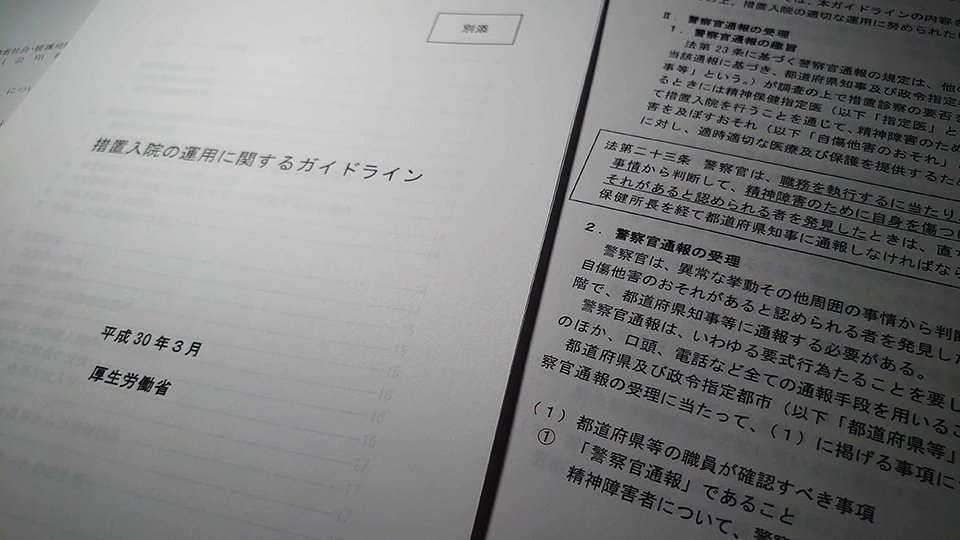 別添
措置入院の運用に関するガイドライン
平成30年3月
厚生労働省
の上、措置入院の適切な運用に努められた
Ⅱ．警察官通報の受理
1．警察官通報の趣旨
法第23条に基づく警察官通報の規定は、他の
当該通報に基づき、都道府県知事及び政令指定
事等」という。）が調査の上で措置診察の要否を
るときには精神保健指定医（以下「指定医」と
て措置入院を行うことを通じて、精神障害のため
害を及ぼすおそれ（以下「自傷他害のおそれ」
に対し、適時適切な医療及び保護を提供するため
法第二十三条　警察官は、職務を執行するに当たり
事情から判断して、精神障害のために自身を傷つ
それがあると認められる者を発見したときは、直
保健所長を経て都道府県知事に通報しなければなら
2．警察官通報の受理
警察官は、異常な挙動その他周囲の事情から判断
自傷他害のおそれがあると認められる者を発見した
階で、都道府県知事等に通報する必要がある。
警察官通報は、いわゆる要式行為たることを要し
のほか、口頭、電話など全ての通報手段を用いるこ
都道府県及び政令指定都市（以下「都道府県等」
察官通報の受理に当たって、（1）に掲げる事項に
（1）都道府県等の職員が確認すべき事項
①「警察官通報」であること
精神障害者について、警